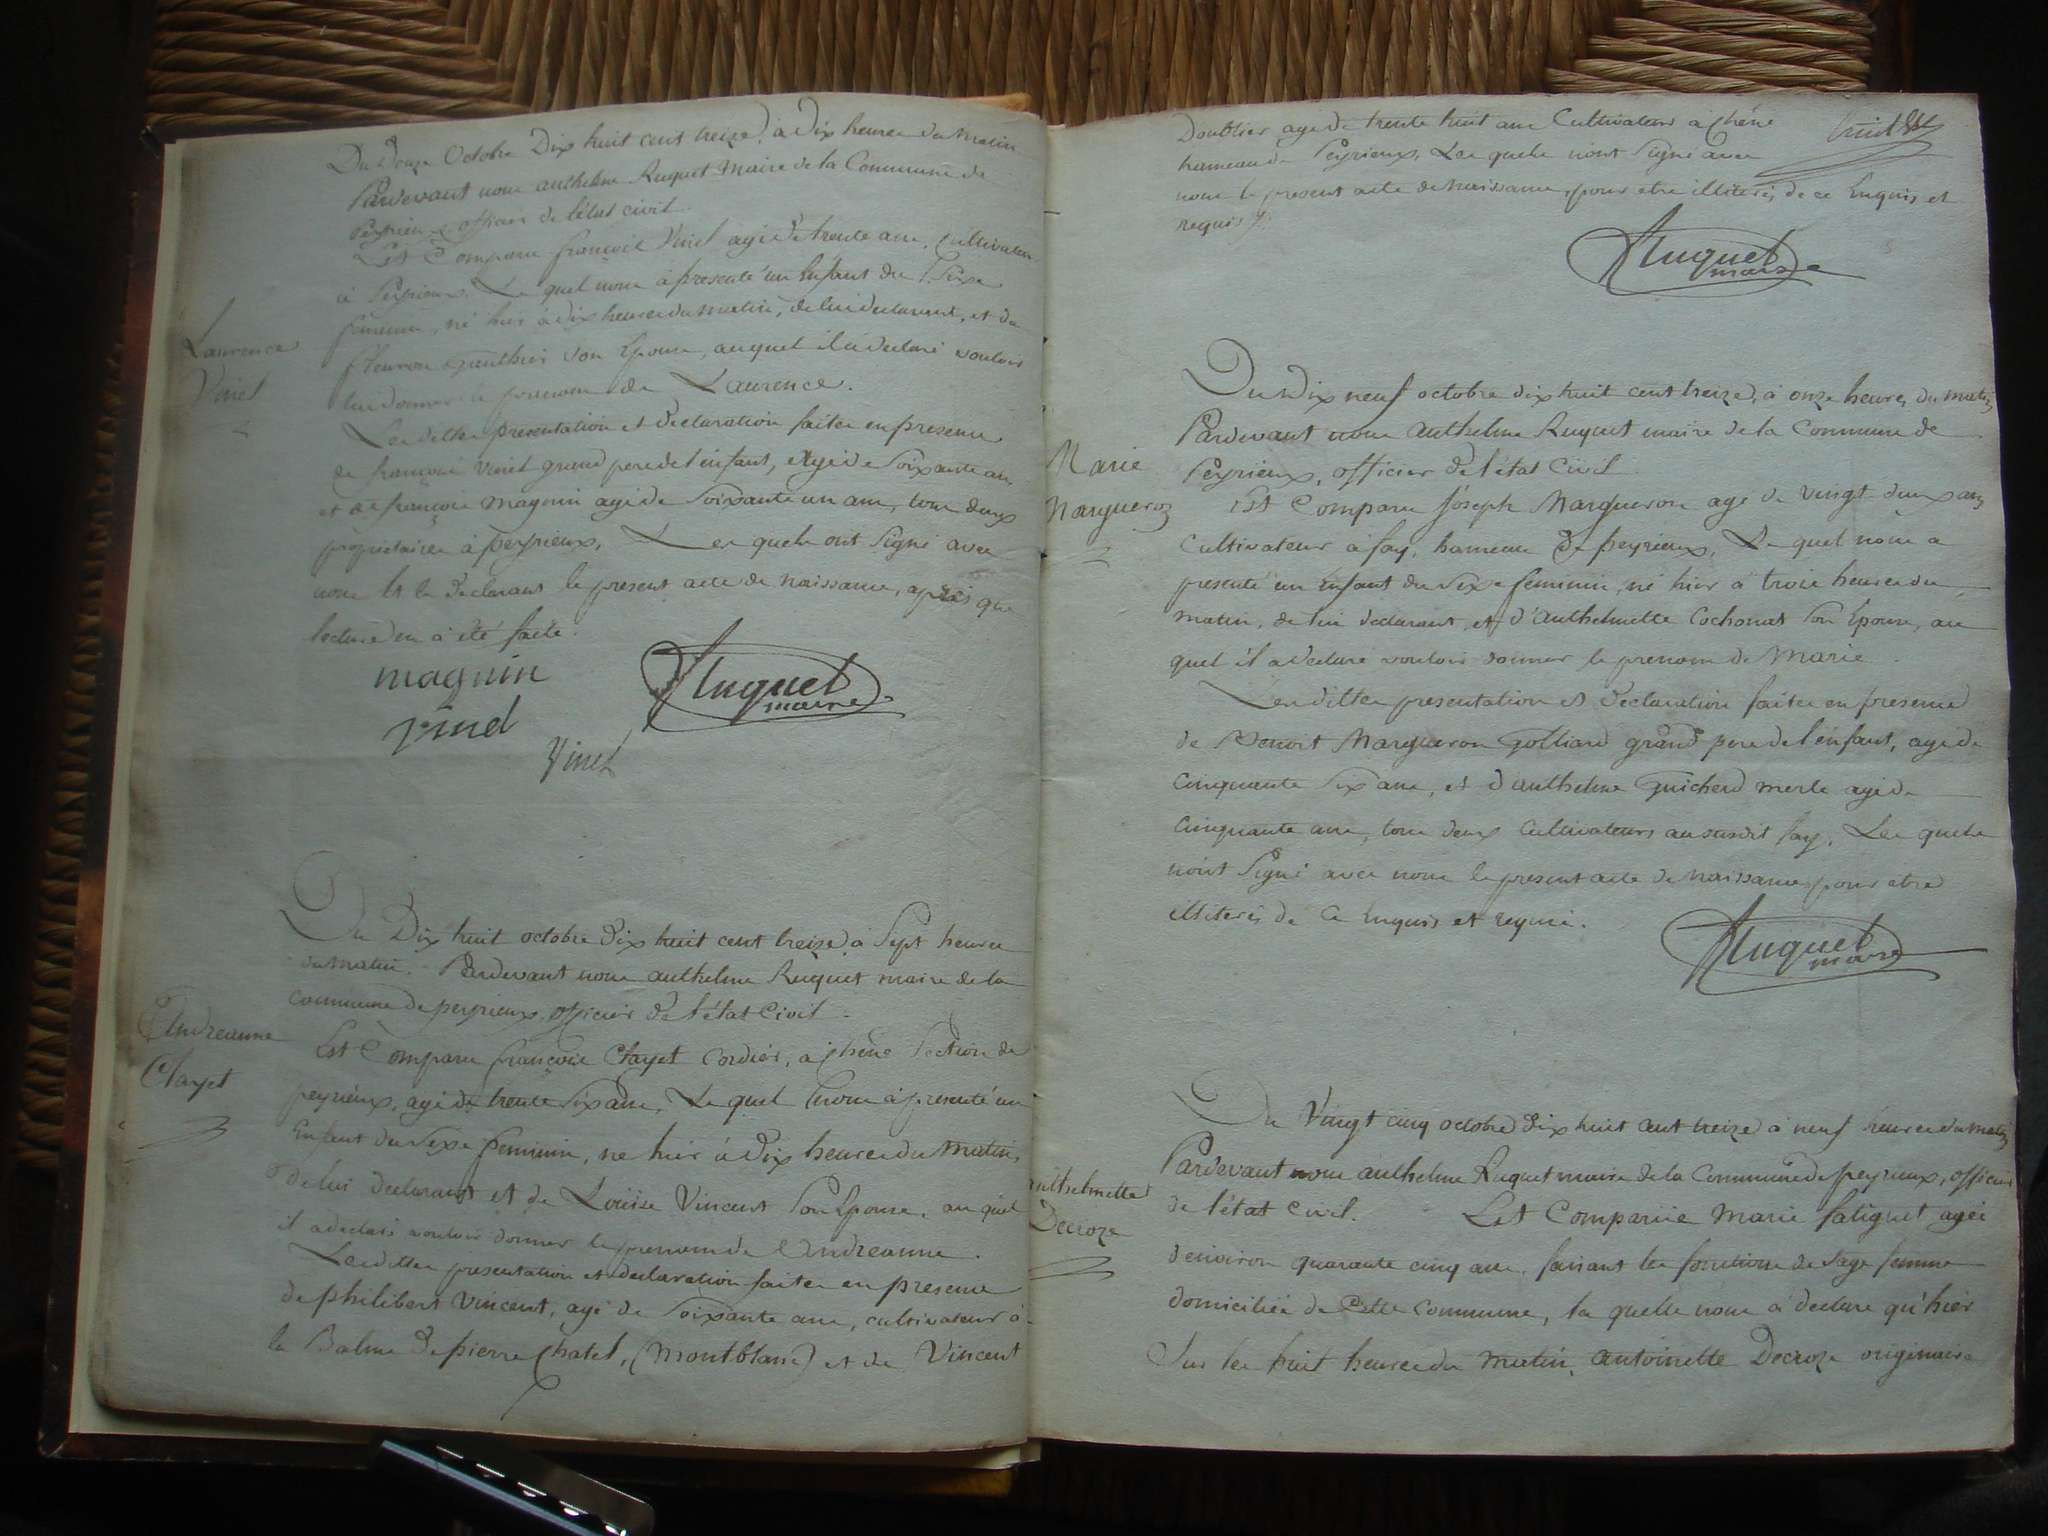 Du Douze Octobre Dix huit cent treize, à Dix heures du Matin
Pardevant nous anthelme Ruquet Maire de la Commune de
Peyrieux officier de l'état civil.
Est Comparu françois Vinet agé de trente ans, cultivateur
à Peyrieux, Le quel nous à presenté un Enfant du Sexe
feminin, né hier à dix heures du matin, de lui declarant, et de
gauthier son Epouse, auquel il a declaré vouloir
lui donner le prenom de Laurence.
Laurence
Vinet
Les dittes presentation et declaration faites en presence
de françois Vinet grand pere de l'enfant, agé de Soixante ans
et de françois magnin agé de Soixante un ans, tous deux
proprietaires à peyrieux, Les quels ont Signé avec
nous et le Declarant le present acte de naissance, après que
lecture en à été faite.
magnin
Ruquet
maire
vinet
Vinet
Du Dix huit octobre dix huit cent treize à Sept heures
du matin. Pardevant nous anthelme Ruquet maire de la
commune de peyrieux, officier de l'état Civil.
Andreanne
Clayet
Est Comparu françois Clayet Cordier, à Chêne Section de
peyrieux, agé de trente Six ans, Le quel nous à presenté un
Enfant du Sexe feminin, né hier à Dix heures du Matin,
de lui declarant et de Louise Vincent Son Epouse, au quel
il a declaré vouloir donner le prenom de Andreanne.
Les dittes presentation et declaration faites en presence
de philibert Vincent, agé de Soixante ans, cultivateur à
la Balme de pierre Chatel, (montblanc) et de Vincent
Doublier agé de trente huit ans Cultivateur à Chêne
hameau de Peyrieux, Les quels n'ont Signé avec
nous le present acte de naissance, pour etre illiterés, de ce Enquis et
requis
Ruquet
maire
Du Dix neuf octobre dix huit cent treize, à onze heures du matin
Pardevant nous Anthelme Ruquet maire de la Commune de
Peyrieux, officier de l'état Civil.
Marie
Margueron
Est Comparu Joseph Margueron agé de vingt deux ans
Cultivateur à fay, hameau de peyrieux, Le quel nous a
presenté un enfant du Sexe feminin, né hier à trois heures du
matin, de lui declarant, et d'Anthelmette Cochonat Son Epouse, au
quel il a declaré vouloir donner le prenom de Marie.
Les dittes presentation et declaration faites en presence
de Benoit Margueron Golliard grand pere de l'enfant, agé de
Cinquante Six ans, et d'anthelme Guicherd merle agé de
Cinquante ans, tous deux Cultivateurs au susdit fay, Les quels
n'ont Signé avec nous le present acte de naissance pour etre
illiterés de Ce Enquis et requis.
Ruquet
maire
Du Vingt cinq octobre dix huit cent treize à neuf heures du matin
Pardevant nous anthelme Ruquet maire de la Commune de peyrieux, officier
de l'état Civil. Est Comparüe Marie faliguet agée
anthelmette
Decroze
d'environ quarante cinq ans, faisant les fonctions de Sage femme
domiciliée de Cette Commune, la quelle nous à declaré qu'hier
Sur les huit heures du matin, antoinette Decroze originaire